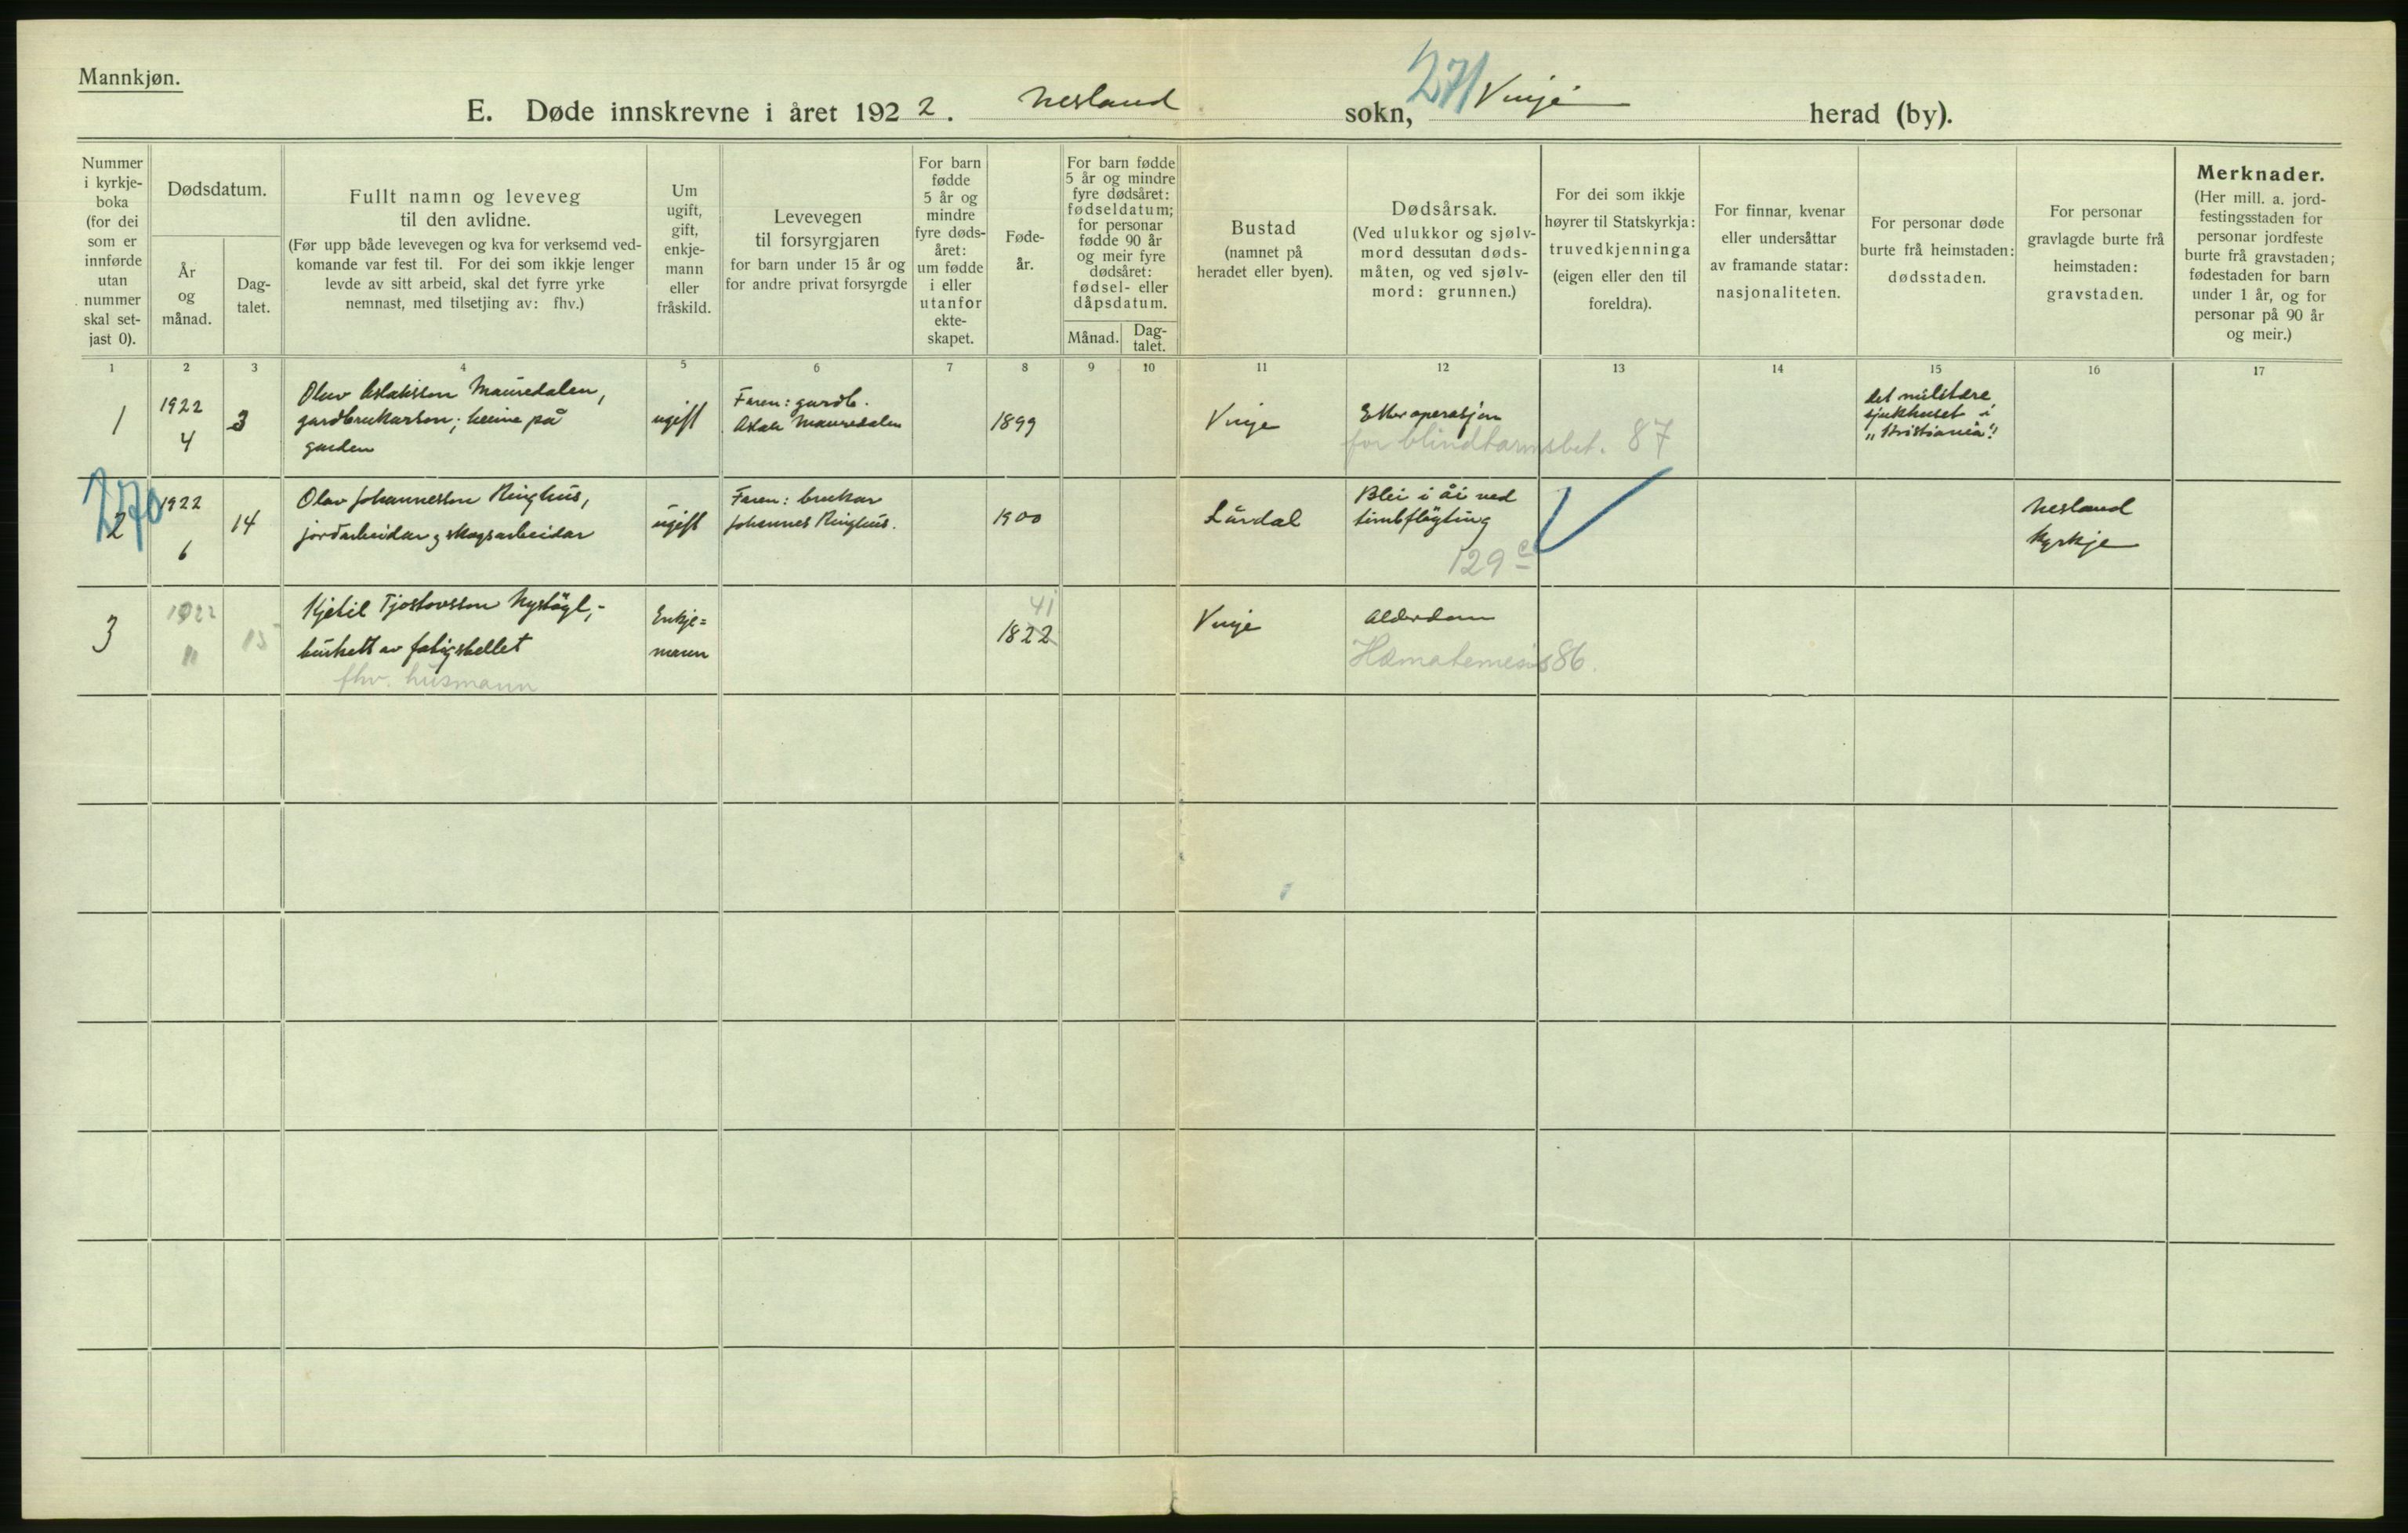 Mannkjøn.
E. Døde innskrevne i året 1922. Nesland sokn, 271 Vinje herad (by).
Nummer
i kyrkje-
boka
(for dei
som er
innførde
utan
nummer
skal set-
jast 0).
Dødsdatum.
År
og
månad.
Dag-
talet.
Fullt namn og leveveg
til den avlidne.
(Før upp både levevegen og kva for verksemd ved-
komande var fest til. For dei som ikkje lenger
levde av sitt arbeid, skal det fyrre yrke
nemnast, med tilsetjing av: fhv.)
Um
ugift,
gift,
enkje-
mann
eller
fråskild.
Levevegen
til forsyrgjaren
for barn under 15 år og
for andre privat forsyrgde
For barn
fødde
5 år og
mindre
fyre døds-
året:
um fødde
i eller
utanfor
ekte-
skapet.
Føde-
år.
For barn fødde
5 år og mindre
fyre dødsåret:
fødseldatum;
for personar
fødde 90 år
og meir fyre
dødsåret:
fødsel- eller
dåpsdatum.
Månad.
Dag-
talet.
Bustad
(namnet på
heradet eller byen).
Dødsårsak.
(Ved ulukkor og sjølv-
mord dessutan døds-
måten, og ved sjølv-
mord: grunnen.)
For dei som ikkje
høyrer til Statskyrkja:
truvedkjenninga
(eigen eller den til
foreldra).
For finnar, kvenar
eller undersåttar
av framande statar:
nasjonaliteten.
For personar døde
burte frå heimstaden:
dødsstaden.
For personar
gravlagde burte frå
heimstaden:
gravstaden.
Merknader.
(Her mill. a. jord-
festingsstaden for
personar jordfeste
burte frå gravstaden;
fødestaden for barn
under 1 år, og for
personar på 90 år
og meir.)
1 2 3 4 5 6 7 8 9 10 11 12 13 14 15 16 17
1
1922
4
3
Olav Aslakson Mauredalen,
gardbrukarson; heime på
garden
ugift
Faren: gardb.
Aslak Mauredalen
1899
Vinje
Etter operasjon
for blindtarmsbet. 87
det militære
sjukhuset i
"Kristiania".
270
2
1922
6
14
Olav Johannesson Ringhus,
jordarbeidar og skogsarbeidar
ugift
Faren: brukar
Johannes Ringhus.
1900
Lårdal
Blei i åi ved
timbfløyting
129 c
Nesland
Kyrkje
3
1922
11
15
Kjetil Tjostovson Nystøgl,-
av fatigstellet
fhv. husmann
Enkje=
mann
41
1822
Vinje
Alderdom
Hæmatemesis 86.